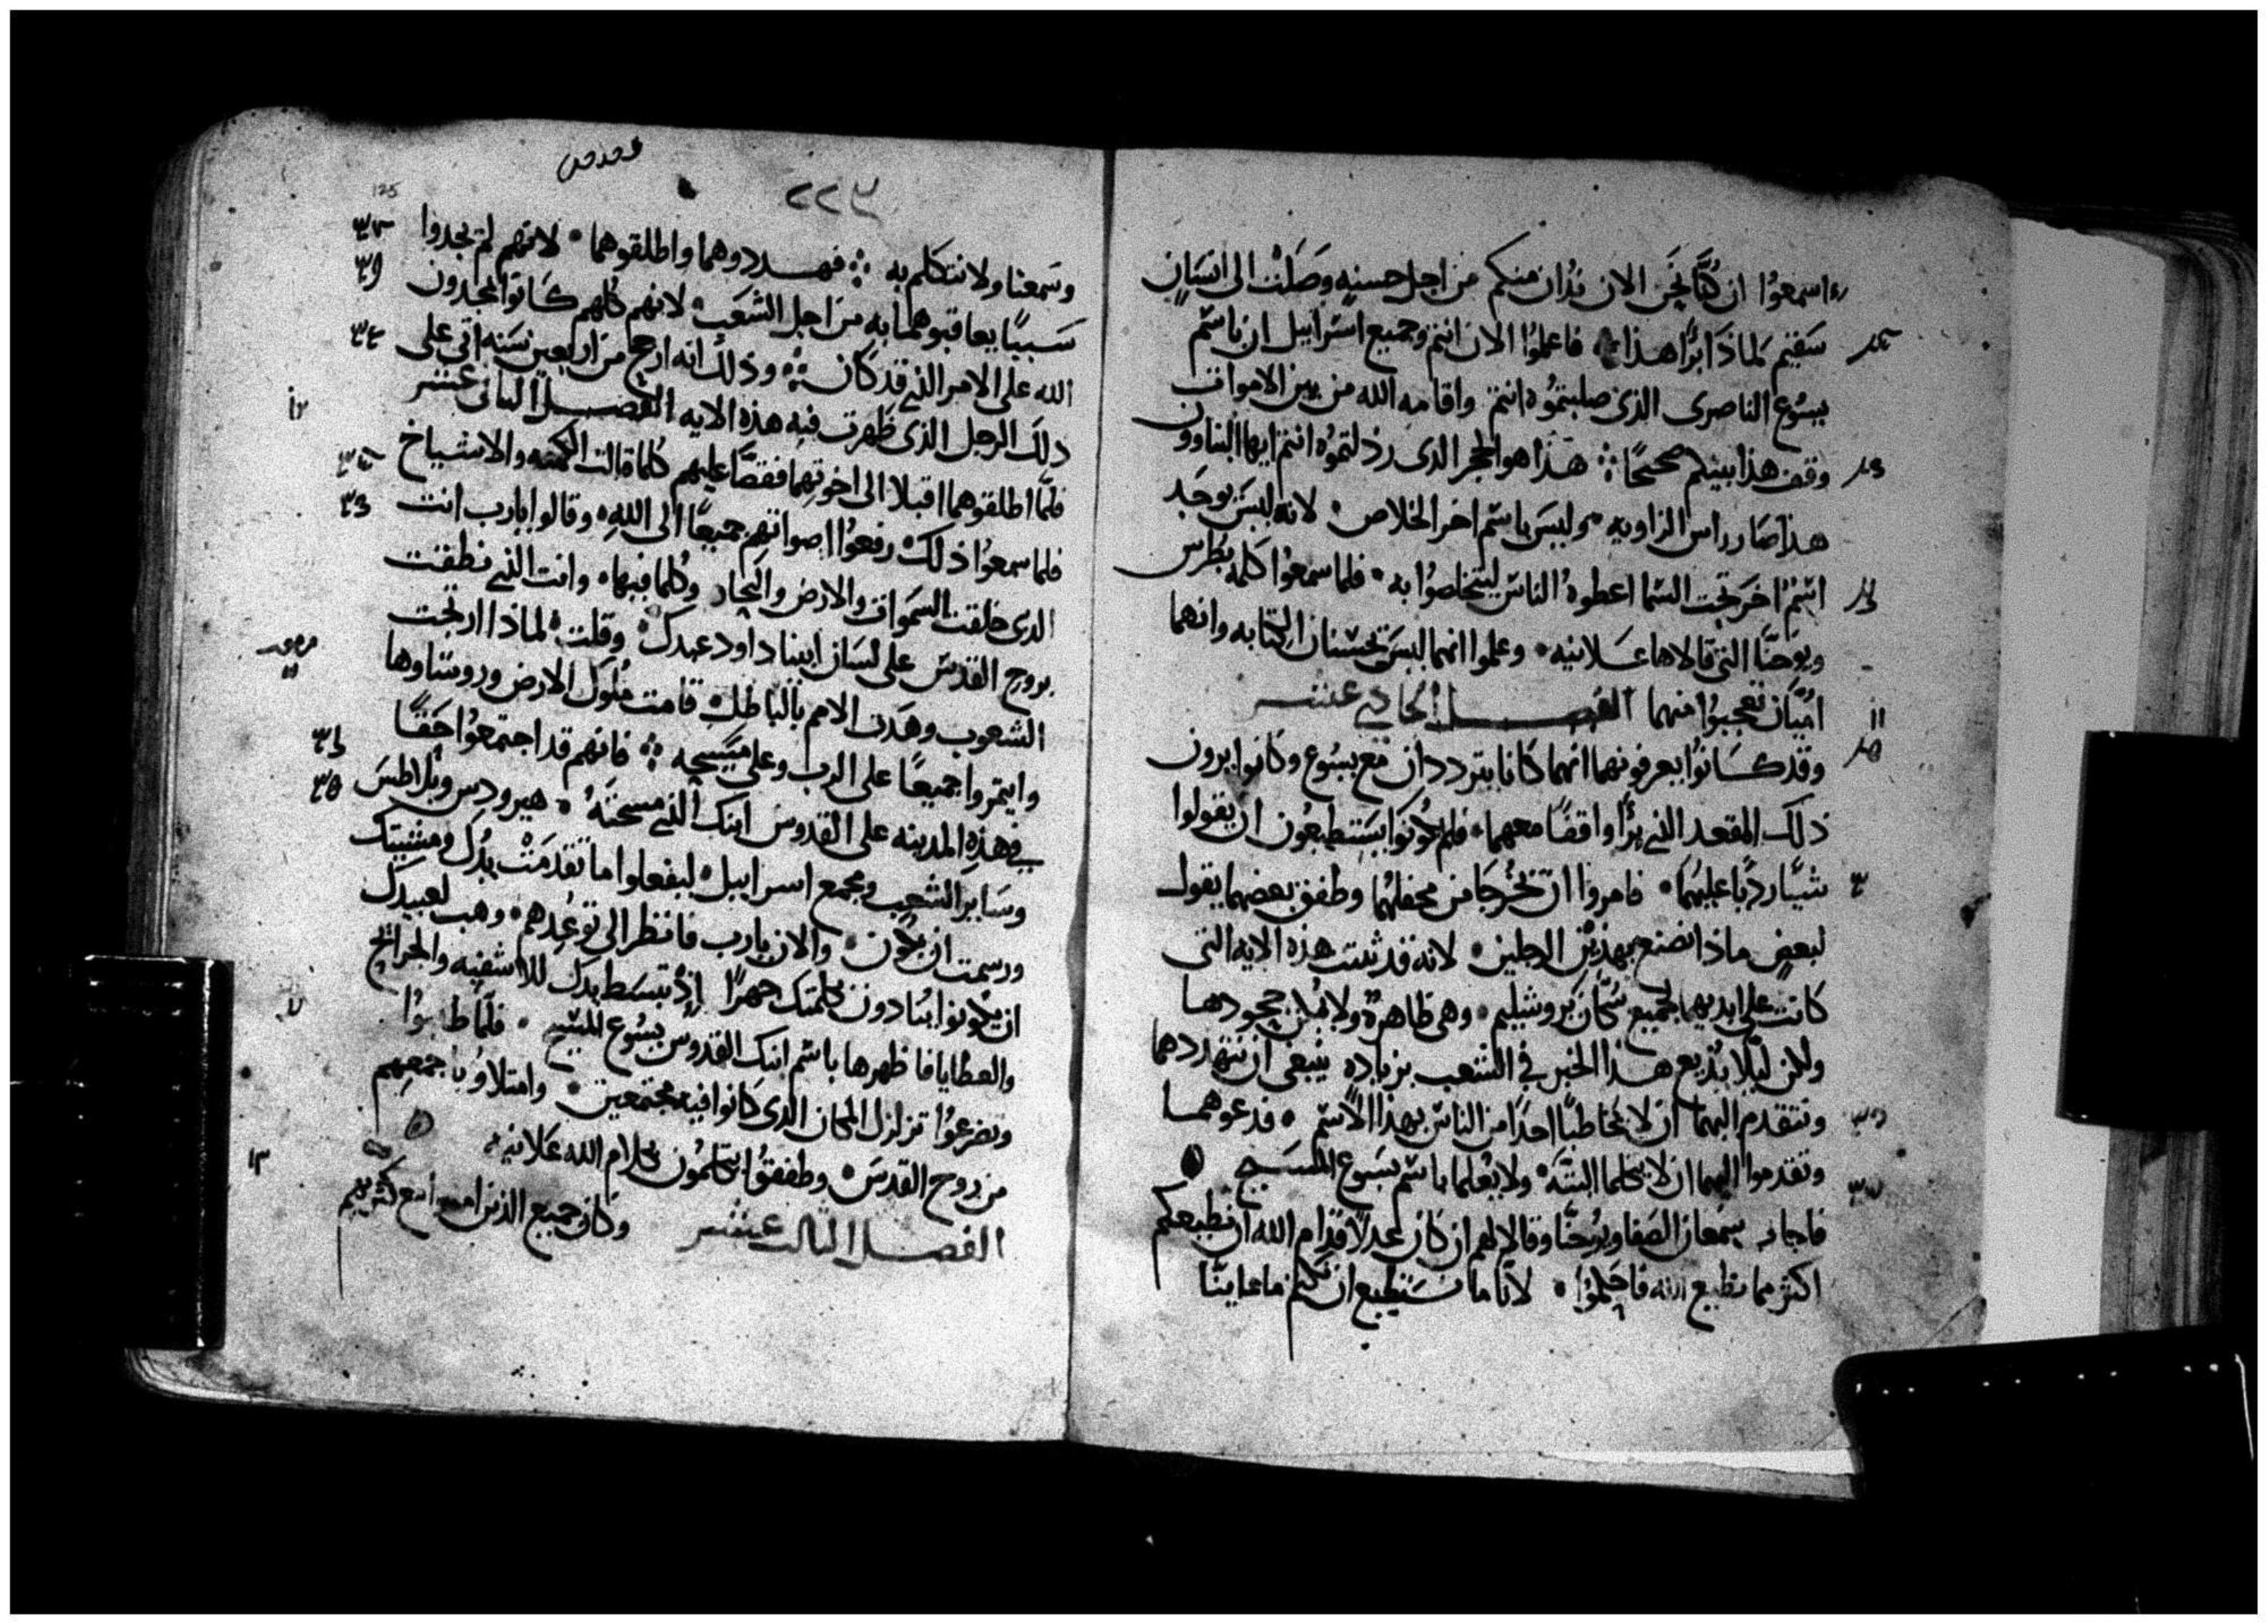 اسمعوا ان كنا نحن الان ندان منكم من اجل حسنه وصلت الى انسان
سقيم لماذا برأ هذا فاعلموا الان انتم وجميع اسراييل ان باسم
يسوع الناصرى الذى صلبتموه انتم واقامه الله من بين الاموات
وقف هذا بينكم صحيحًا هذا هو الحجر الدى رذلتموه انتم ايها البناوون
هذا صار راس الزاويه وليس باسم اخر الخلاص لانه ليس يوجد
اسمُ اخر تحت السما اعطوه الناس ليتخلصوا به فلما سمعوا كلمه بطرس
ويوحنا التى قالاها علانيه وعلموا انهما ليس يحسنان الكتابه وانهما
اميّان تعجبوا منهما الفصل الحادي عشر
وقد كانوا يعرفونهما انهما كانا يترددان مع يسوع وكانوا يرون
ذلك المقعد الذي برأ واقفًا معهما فلم يكونوا يستطيعون ان يقولوا
شيًا ردًا عليهما فامروا ان يخرجا من محفلهما وطفق بعضهما يقول
لبعض ماذا نصنع بهذين الرجلين لانه قد ثبتت هذه الايه التى
كانت على ايديهما لجميع سكان يروشليم وهى ظاهرة ولا يمكن جحودها
ولكن ليلا يذيع هذا الخبر في الشعب بزياده ينبغى ان نتهددهما
ونتقدم اليهما ان لا يخاطبا احدًا من الناس بهذا الاسم فدعوهما
وتقدموا اليهما ان لا يتكلما البته ولا يعلما باسم يسوع المسيح
فاجاب سمعان الصفا ويوحنا وقالا لهم ان كان عدلا قدام الله ان نطيعكم
اكثر مما نطيع الله فاحكموا لانا ما نستطيع ان نكتم ما عاينا
٢٢٣
125
وسمعنا ولا نتكلم به فهددوهما واطلقوهما لانهم لم يجدوا
سببًا يعاقبوهما به من اجل الشعب لانهم كلهم كانوا يمجدون
الله على الامر الذي قد كان وذلك انه ارجح من اربعين سنه اتى على
ذلك الرجل الذى ظهرت فيه هذه الايه الفصل الثانى عشر
فلمّا اطلقوهما اقبلا الى اخوتهما فقصّا عليهم كلما قالت الكهنه والاشياخ
فلما سمعوا ذلك رفعوا اصواتهم جميعًا الى الله وقالوا يا رب انت
الدى خلقت السموات والارض والبحار وكلما فيها وانت الذي نطقت
بروح القدس على لسان ابينا داود عبدك وقلت لماذا ارتجت
الشعوب وهدت الامم بالباطل قامت ملوك الارض وروساوها
وايتمروا جميعًا على الرب وعلى مسيحه فانهم قد اجتمعوا حقًا
في هذه المدينه على القدوس ابنك الذي مسحتَهُ هيرودس وبلاطس
وساير الشعوب ومجمع اسراييل ليفعلوا ما تقدمَتْ يدك ومشيتك
ورسمت ان يكون والان يا رب فانظر الى توعُدهم وهب لعبيدك
ان يكونوا ينادون بكلمتك جهرًا اذ تبسط يدك للاشفيه والجرايح
والعطايا فاظهرها باسم ابنك القدوس يسوع المسيح فلما طلبوا
وتضرعوا تزلزل المكان الدى كانوا فيه مجتمعين وامتلاوا باجمعهم
من روح القدس وطفقوا يتكلمون بكلام الله علانيه
الفصل الثالث عشر وكان جميع الذين امنوا مع كثرتهم